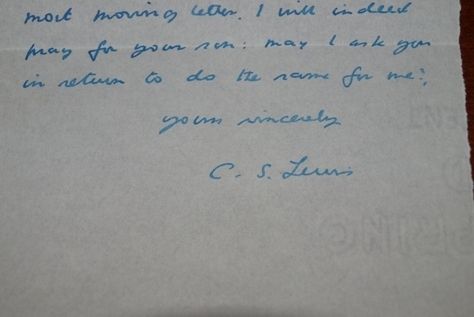 most moving letter. I will indeed
pray for your son: may I ask you
in return to do the same for me?
yours sincerely
C. S. Lewis